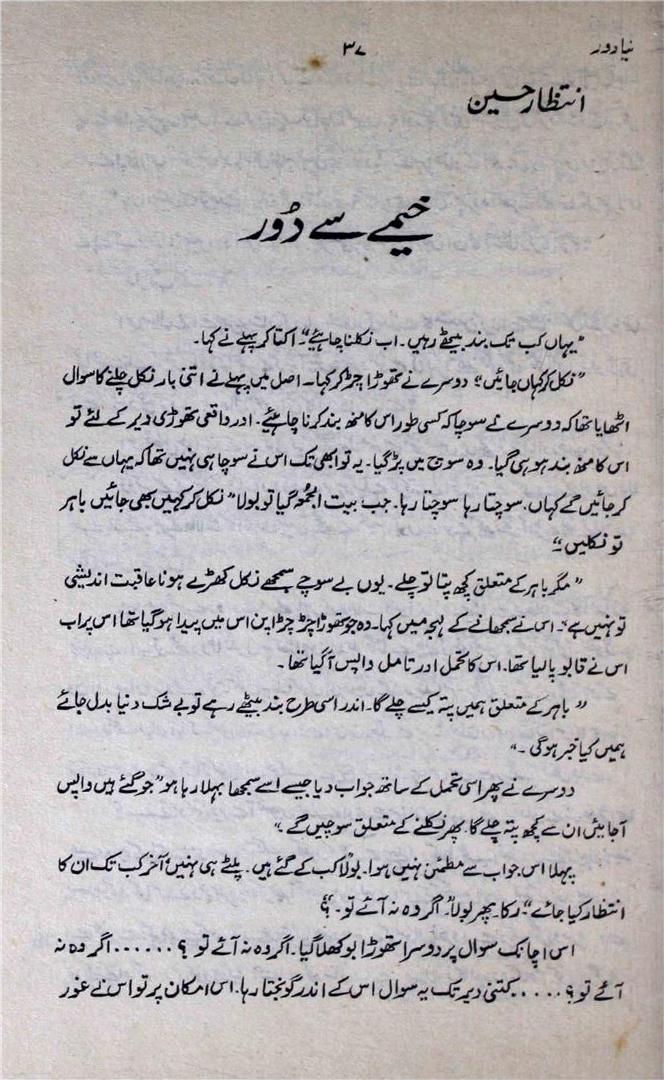 نیا دور
۳۷
انتظار حسین
خیمے سے دُور
"یہاں کب تک بند بیٹھے رہیں۔ اب نکلنا چاہئے"۔ اکتا کر پہلے نے کہا۔
"نکل کر کہاں جائیں"؟ دوسرے نے تھوڑا چڑ کر کہا۔ اصل میں پہلے نے اتنی بار نکل چلنے کا سوال
اٹھایا تھا کہ دوسرے نے سوچا کہ کسی طور اس کا منھ بند کرنا چاہئے۔ اور واقعی تھوڑی دیر کے لئے تو
اس کا منھ بند ہو ہی گیا۔ وہ سوچ میں پڑ گیا۔ یہ تو ابھی تک اس نے سوچا ہی نہیں تھا کہ یہاں سے نکل
کر جائیں گے کہاں۔ سوچتا رہا سوچتا رہا۔ جب بہت الجھ گیا تو بولا "نکل کر کہیں بھی جائیں باہر
تو نکلیں"۔
"مگر باہر کے متعلق کچھ پتا تو چلے۔ یوں بے سوچے سمجھے نکل کھڑے ہونا عاقبت اندیشی
تو نہیں ہے"۔ اس نے سمجھانے کے لہجہ میں کہا۔ وہ جو تھوڑا چڑ چڑا پن اس میں پیدا ہو گیا تھا اس پر اب
اس نے قابو پا لیا تھا۔ اس کا تحمل اور تامل واپس آ گیا تھا۔
"باہر کے متعلق ہمیں پتہ کیسے چلے گا۔ اندر اسی طرح بند بیٹھے رہے تو بے شک دنیا بدل جائے
ہمیں کیا خبر ہوگی۔"
دوسرے نے پھر اسی تحمل کے ساتھ جواب دیا جیسے اسے سمجھا بہلا رہا ہو "جو گئے ہیں واپس
آجائیں ان سے کچھ پتہ چلے گا۔ پھر نکلنے کے متعلق سوچیں گے۔"
پہلا اس جواب سے مطمئن نہیں ہوا۔ بولا "کب کے گئے ہیں۔ پلٹے ہی نہیں آخر کب تک ان کا
انتظار کیا جائے"۔ رکا۔ پھر بولا "اگر وہ نہ آئے تو۔؟"
اس اچانک سوال پر دوسرا تھوڑا بوکھلا گیا۔ اگر وہ نہ آئے تو ؟ ...... اگر وہ نہ
آئے تو ؟ ..... کتنی دیر تک یہ سوال اس کے اندر گونجتا رہا۔ اس امکان پر تو اس نے غور